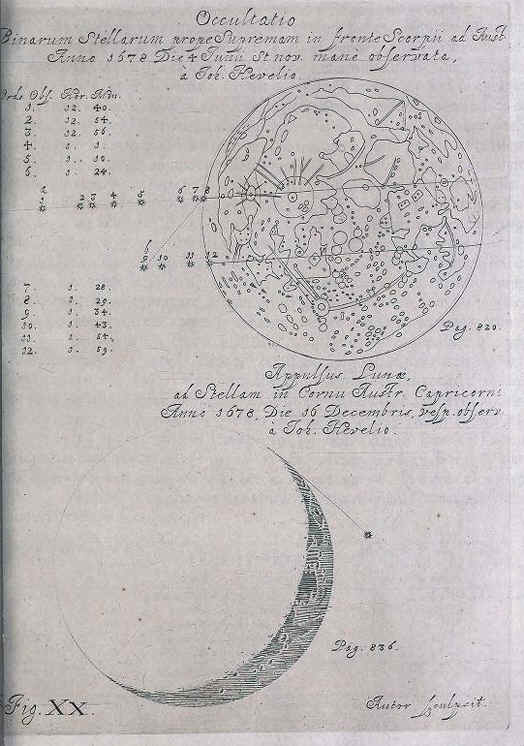 Occultatio
Binarum Stellarum prope Supremam in fronte Scorpii ad Aust.
Anno 1678 Die 4 Junii St. nov. manè observata,
à Joh. Hevelio
Ordo Obs. Hor. Min.
1. 12. 40.
2. 12. 54.
3. 12. 56.
4. 1. 1.
5. 1. 10.
6. 1. 24.
1 2 3 4 5 6 7 8
9 10 11 12
7. 1. 28.
8. 1. 29.
9. 1. 34.
10. 1. 43.
11. 1. 54.
12. 1. 59.
Pag. 820.
Appulsus Lunæ,
ad Stellam in Cornu Austr. Capricorni
Anno 1678, Die 16 Decembris, vesp. observ.
à Joh. Hevelio.
Pag. 836.
Fig. XX.
Autor sculpsit.